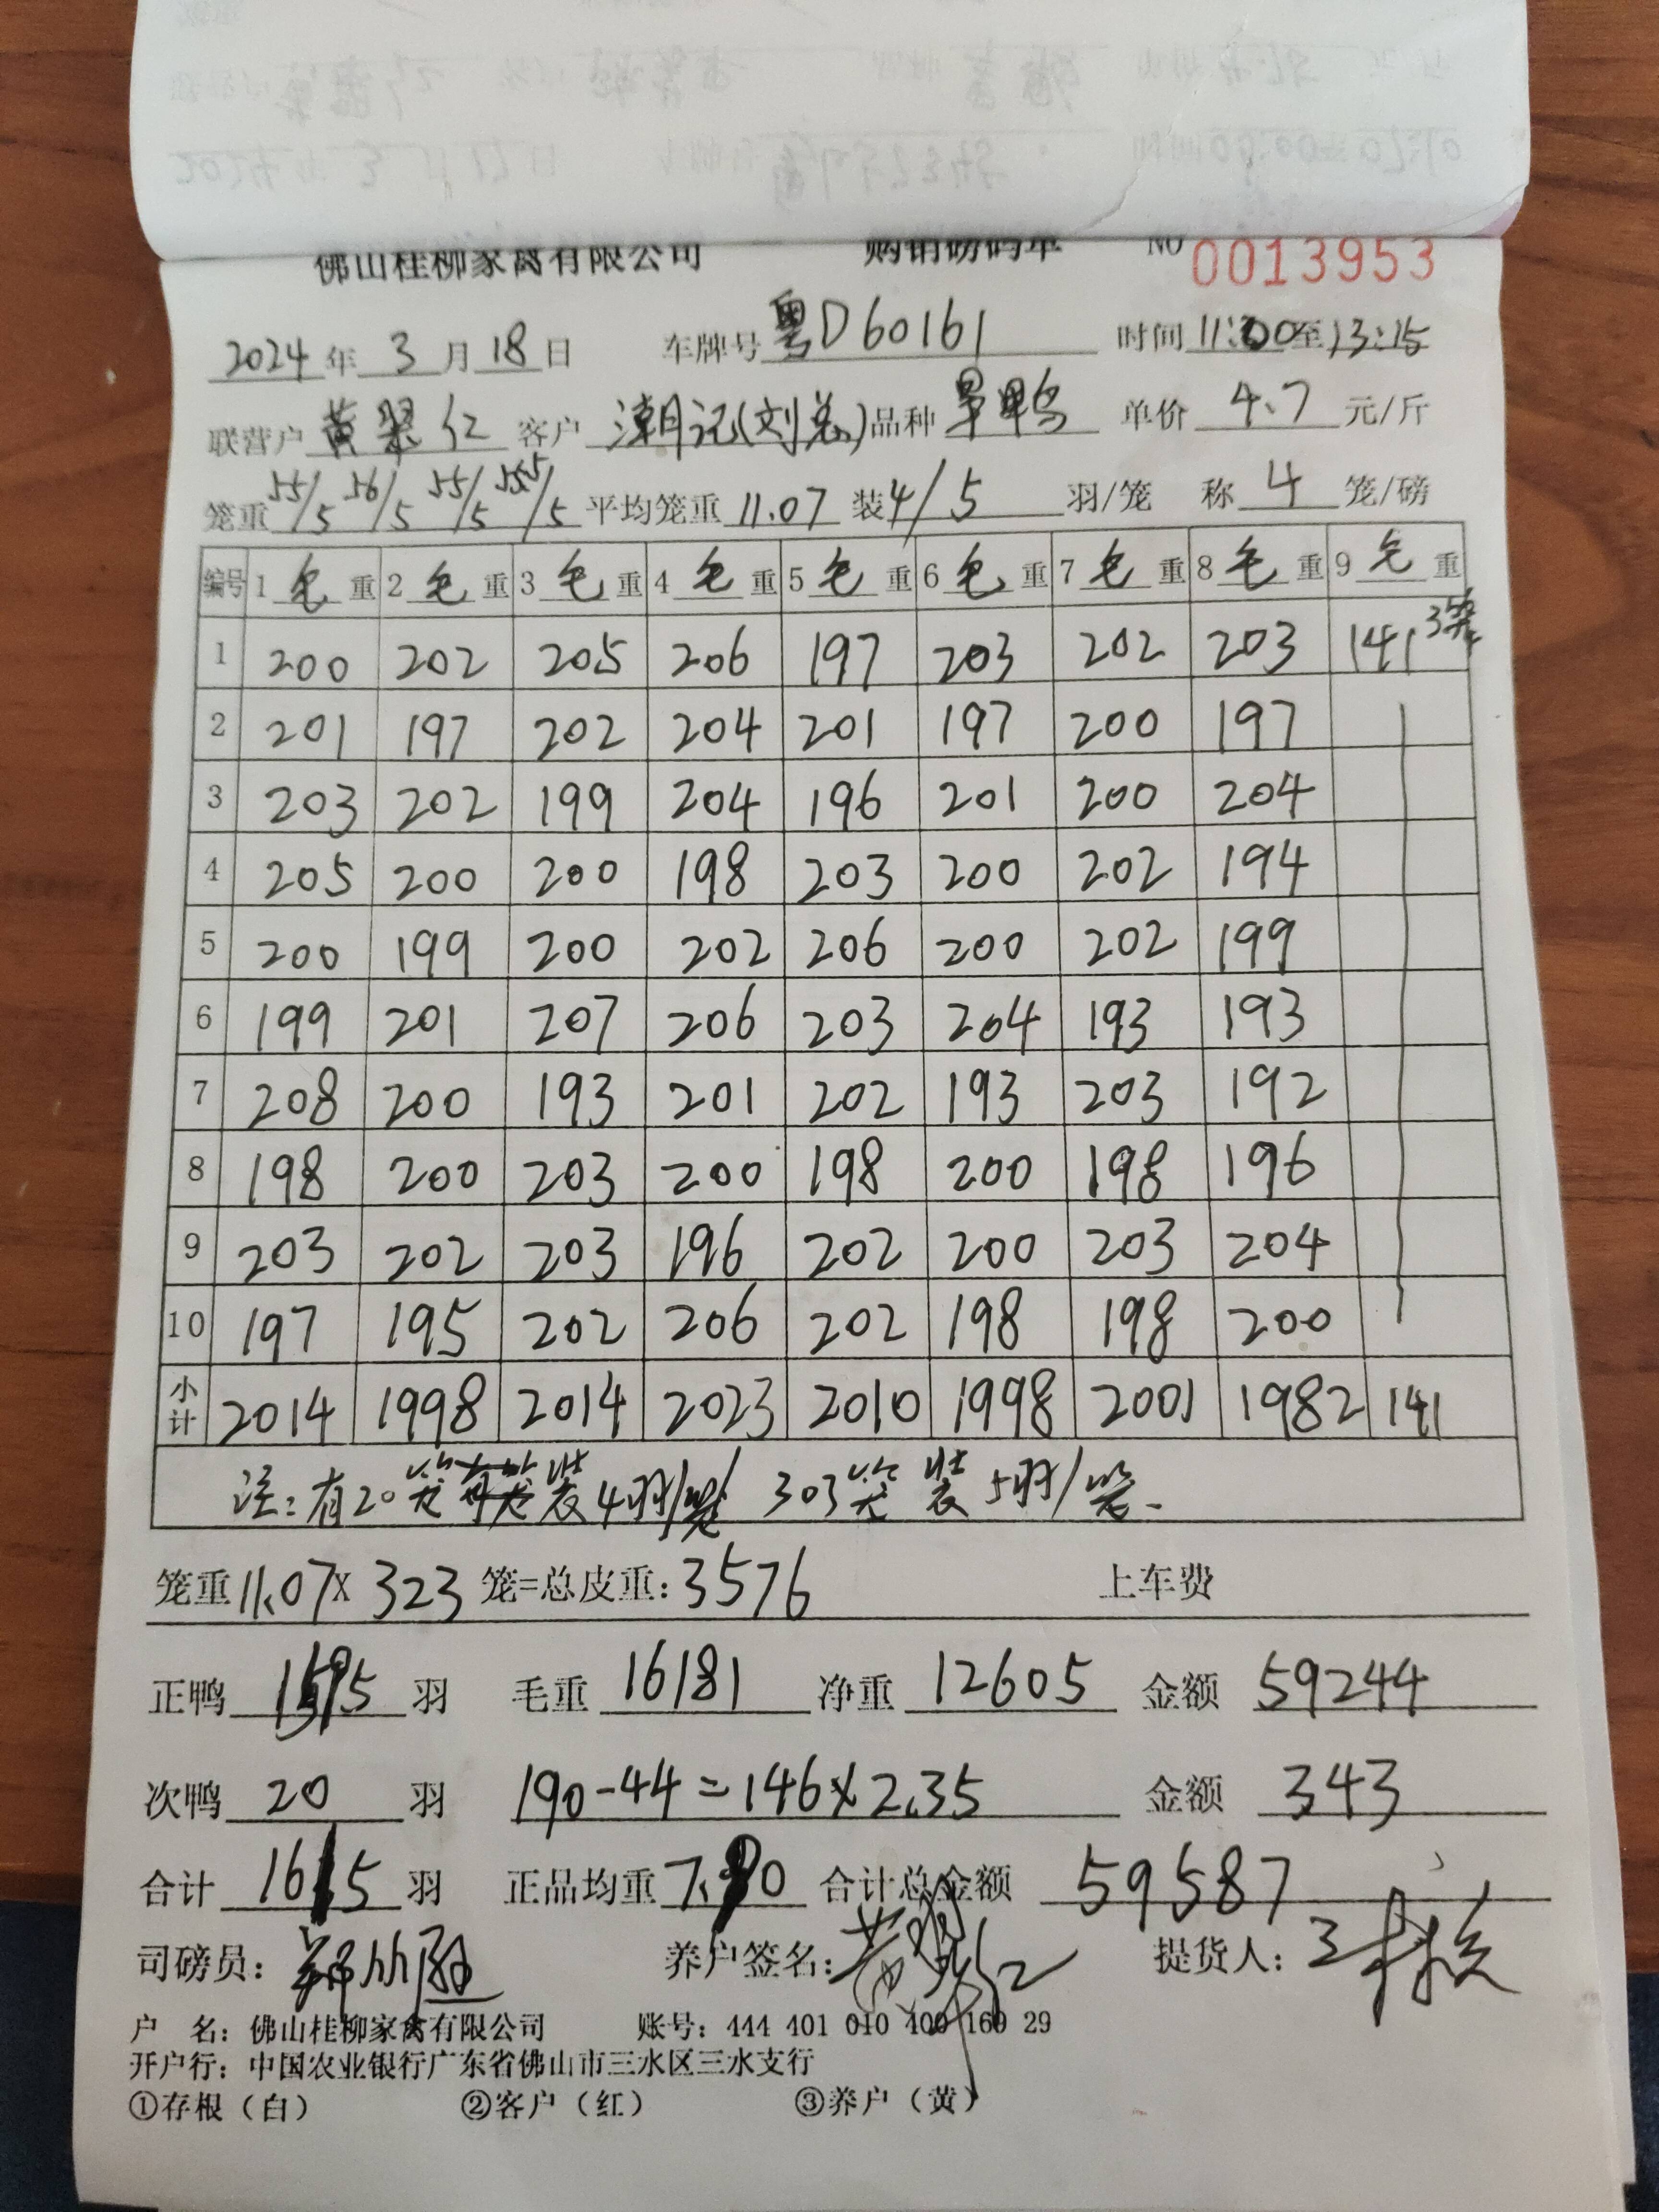 佛山桂柳家禽有限公司 购销磅码单 NO 0013953
2024年3月18日 车牌号 粤D60161 时间 11:00至13:15
联营户 黄翠红 客户 潮记(刘总) 品种 旱鸭 单价 4.7 元/斤
笼重 55/5 56/5 55/5 55.5/5 平均笼重 11.07 装 4/5 羽/笼 称 4 笼/磅
编号 1 毛 重 2 毛 重 3 毛 重 4 毛 重 5 毛 重 6 毛 重 7 毛 重 8 毛 重 9 毛 重
1 200 202 205 206 197 203 202 203 141 3笼
2 201 197 202 204 201 197 200 197
3 203 202 199 204 196 201 200 204
4 205 200 200 198 203 200 202 194
5 200 199 200 202 206 200 202 199
6 199 201 207 206 203 204 193 193
7 208 200 193 201 202 193 203 192
8 198 200 203 200 198 200 198 196
9 203 202 203 196 202 200 203 204
10 197 195 202 206 202 198 198 200
小计 2014 1998 2014 2023 2010 1998 2001 1982 141
注:有20笼装4羽/笼 303笼装5羽/笼.
笼重 11.07 X 323 笼=总皮重: 3576 上车费
正鸭 羽 毛重 16181 净重 12605 金额 59244
次鸭 20 羽 190-44=146×2.35 金额 343
合计 羽 正品均重 合计总金额 59587
司磅员: 养户签名: 黄翠红 提货人:
户 名: 佛山桂柳家禽有限公司 账号: 444 401 010 400 169 29
开户行: 中国农业银行广东省佛山市三水区三水支行
①存根(白) ②客户(红) ③养户(黄)